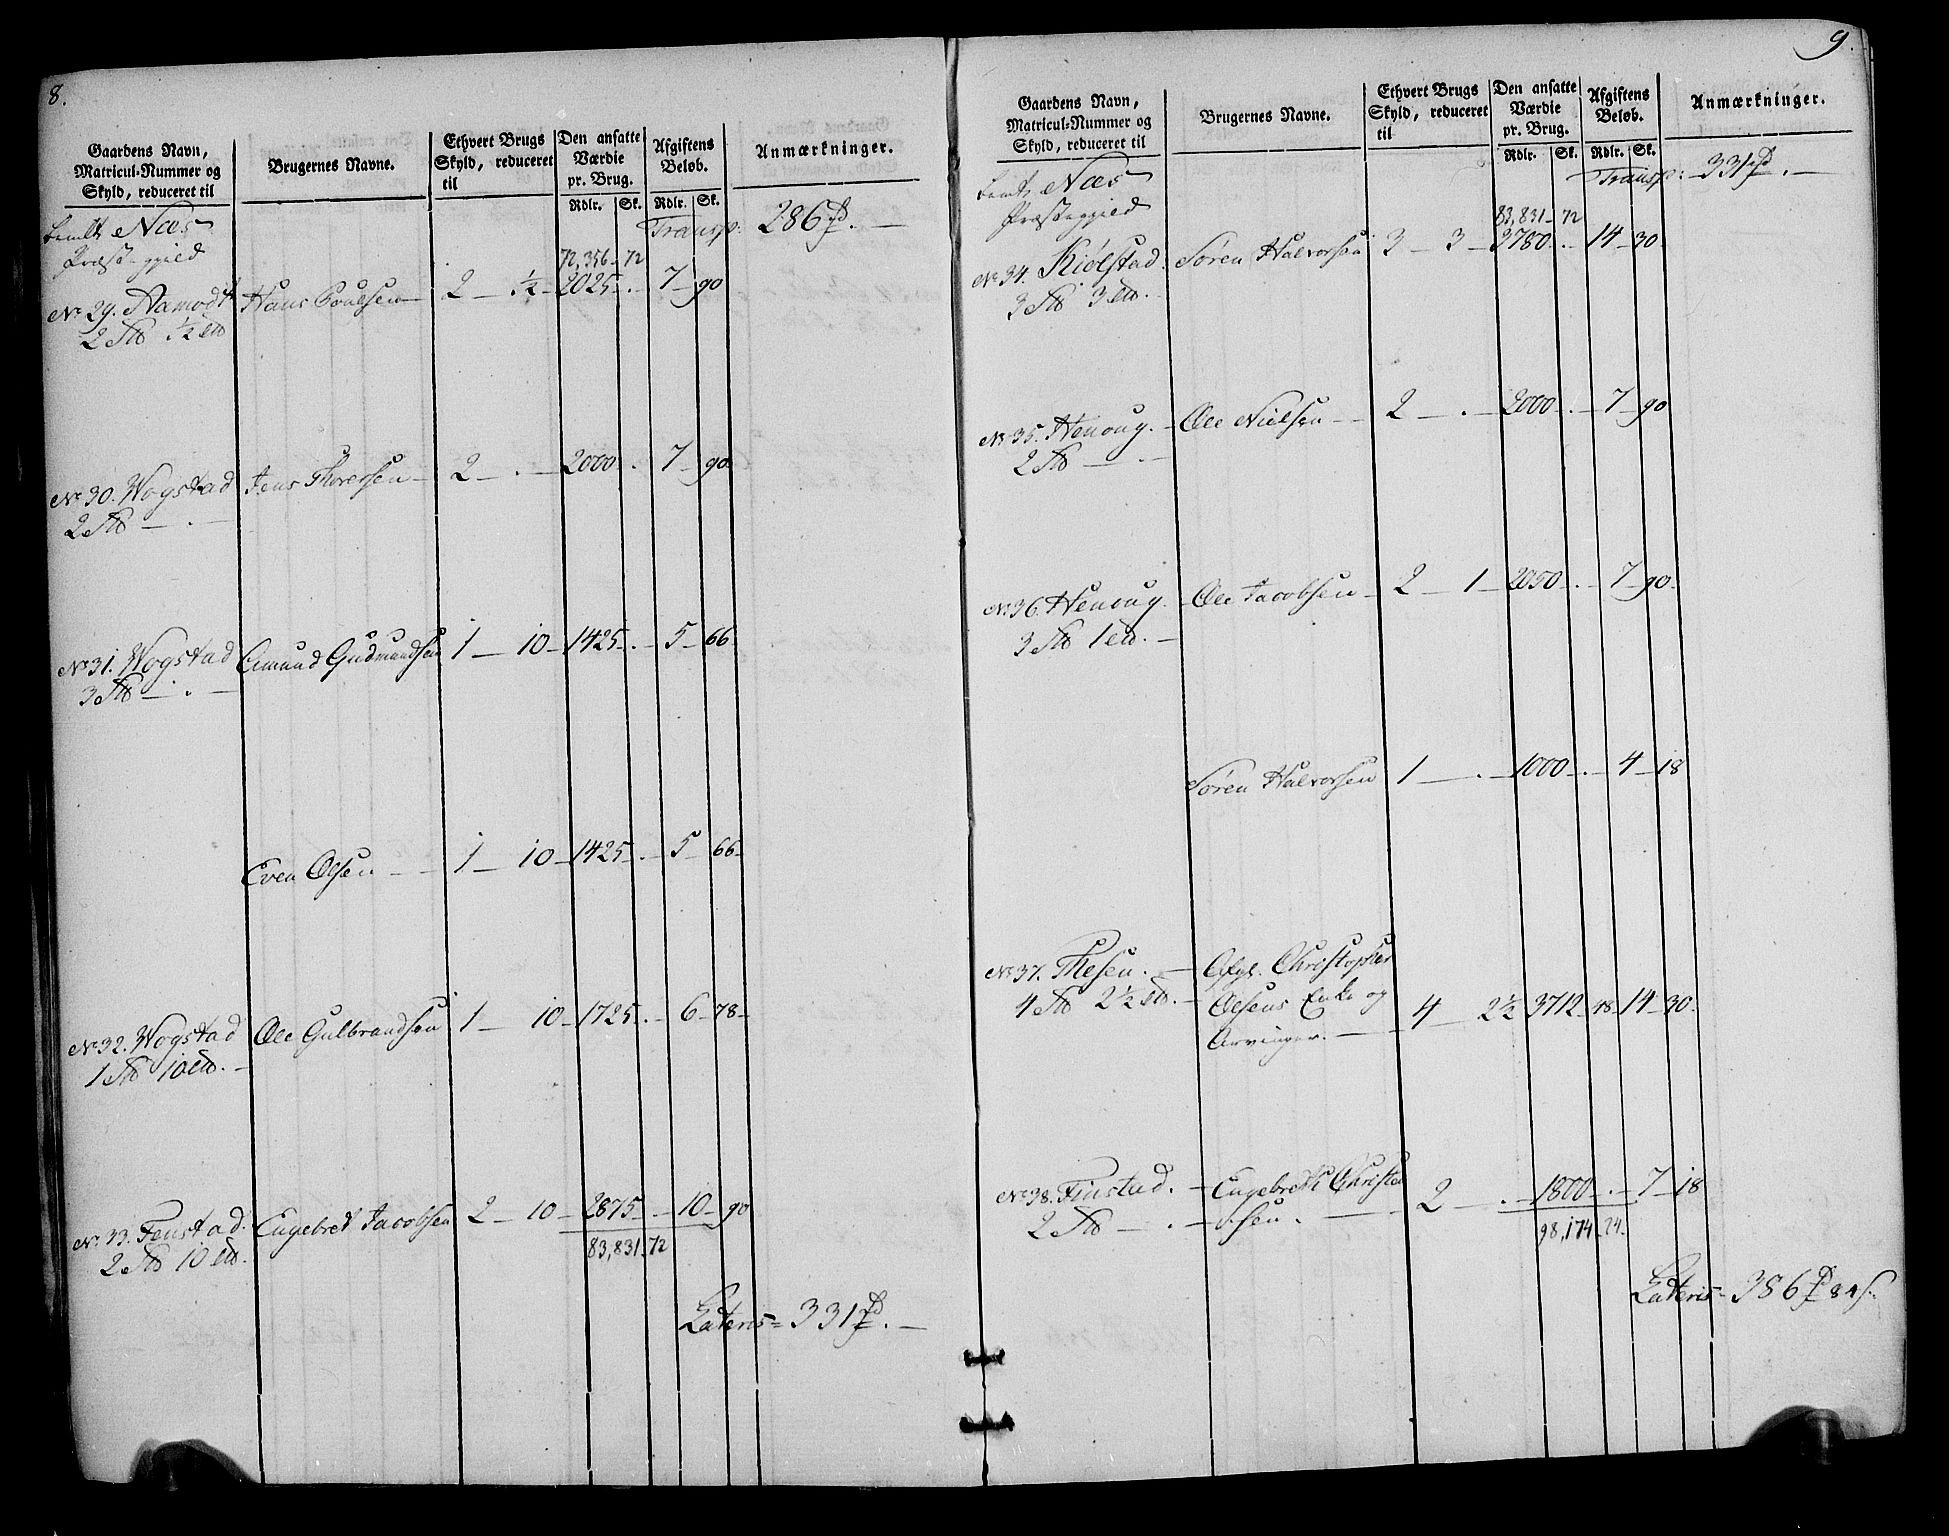 8.
Gaardens Navn, Matricul-Nummer og Skyld, reduceret til
Brugernes Navne.
Ethvert Brugs Skyld, reduceret til
Den ansatte Værdie pr. Brug.
Afgiftens Beløb.
Anmærkninger.
Rdlr. Sk. Rdlr. Sk.
Næs Transp: 286 .—
Præstegjeld 72,356 - 72
No 29. Aamodt Hans Poulsen — 2 — ½ — 2025 - . 7 - 90
2 ½
No 30. Wogstad Jens Thorersen — 2 — . — 2000 . 7 - 90
2 — . —
No 31. Wogstad Amund Gudmundsen 1 — 10 - 1425 - . - 5 - 66 -
3 — . —
Even Olsen — — 1 — 10 - 1425 - . - 5 - 66 -
No 32. Wogstad Ole Gulbrandsen 1 — 10 - 1725 - . - 6 - 78 -
1 10 . —
No 33. Fenstad. Engebret Jacobsen 2 — 10 - 2875 - . - 10 - 90
2 10 .
83,831 - 72
Lateris = 331 . —
9.
Gaardens Navn, Matricul-Nummer og Skyld, reduceret til
Brugernes Navne.
Ethvert Brugs Skyld, reduceret til
Den ansatte Værdie pr. Brug.
Afgiftens Beløb.
Anmærkninger.
Rdlr. Sk. Rdlr. Sk.
Næs Transp: 331 . —
Præstegjeld 83,831 - 72
No 34. Kiølstad. Søren Halvorsen 3 — 3 — 2780 - . - 14 - 30
3 3 . —
No 35. Henoug. — Ole Nielsen — — 2 — . — 2000 - . - 7 - 90
2 — . —
No 36. Henoug. — Ole Jacobsen — 2 — 1 — 2050 - . - 7 - 90 -
3 1 . —
Søren Halvorsen 1 — . — 1000 - . - 4 - 18
No 37. Thesen. — Afgl. Christopher
4 2½ . — Olsens Enke og 4 2½ 3712 - 48 - 14 - 30 -
Arvinger. —
No 38. Finstad. — Engebreth Christen
2 — . — sen. — 2 . - 1800 - . - 7 - 18
98,174 - 24 -
Lateris = 386 84